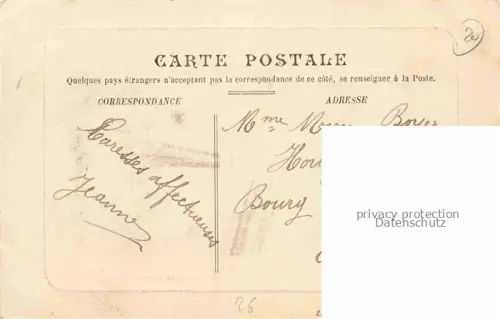 20
CARTE POSTALE
Quelques pays étrangers n'acceptant pas la correspondance de ce côté, se renseigner à la Poste.
CORRESPONDANCE
ADRESSE
Caresses affectueuses
Jeanne
Mme
Bourg
privacy protection
Datenschutz
26